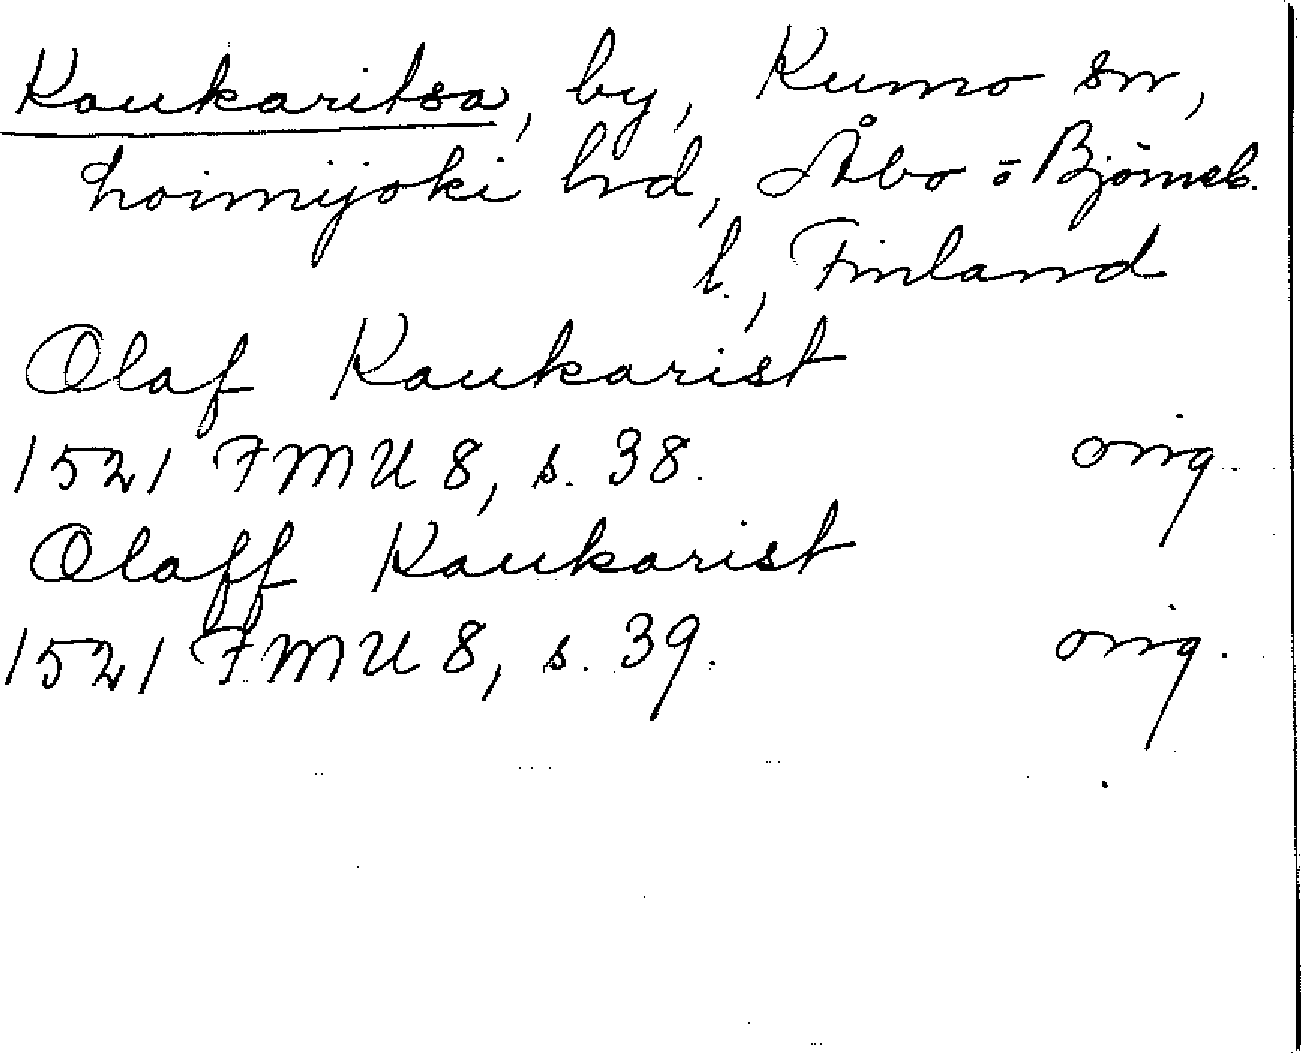 Kaukaritsa, by, Kumo sn,
Loimijoki hd, Åbo o Björneb.
l., Finland
Olaf Kaukarist
1521 FMU 8, s. 38. orig.
Olaff Kaukarist
1521 FMU 8, s. 39. orig.